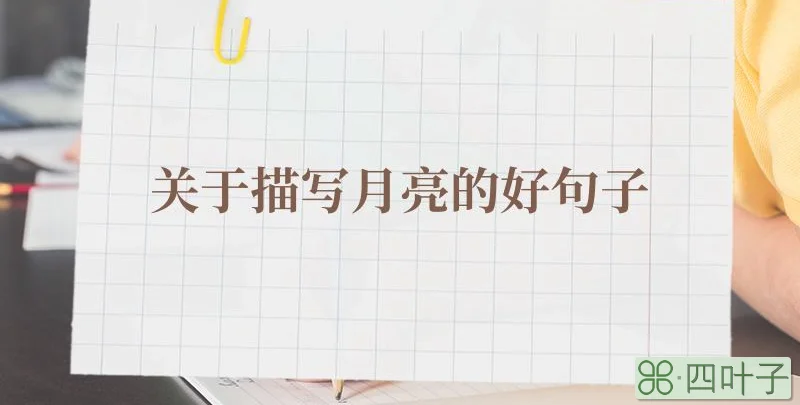 关于描写月亮的好句子
⌘·四叶子